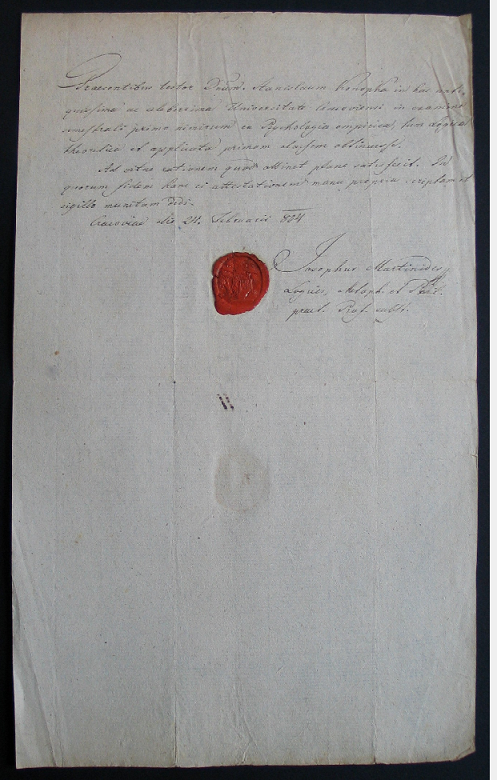 Praesentibus testor Domin. Stanislaum Konopka in hac anti-
quissima ac celeberrima Universitate Cracoviensi in examine
semestrali primo minorem ex Psychologia empirica, tum Logica
theoretica et applicata primam classem obtinuisse.
Ad vitae rationem quod attinet plane satisfecit. In
quorum fidem hanc ei attestationem manu propria scriptam et
sigillo munitam dedi.
Cracoviae die 24. Februarii 804
Josephus Martinides
Logices, Metaph. et Phil.
pract. Prof.